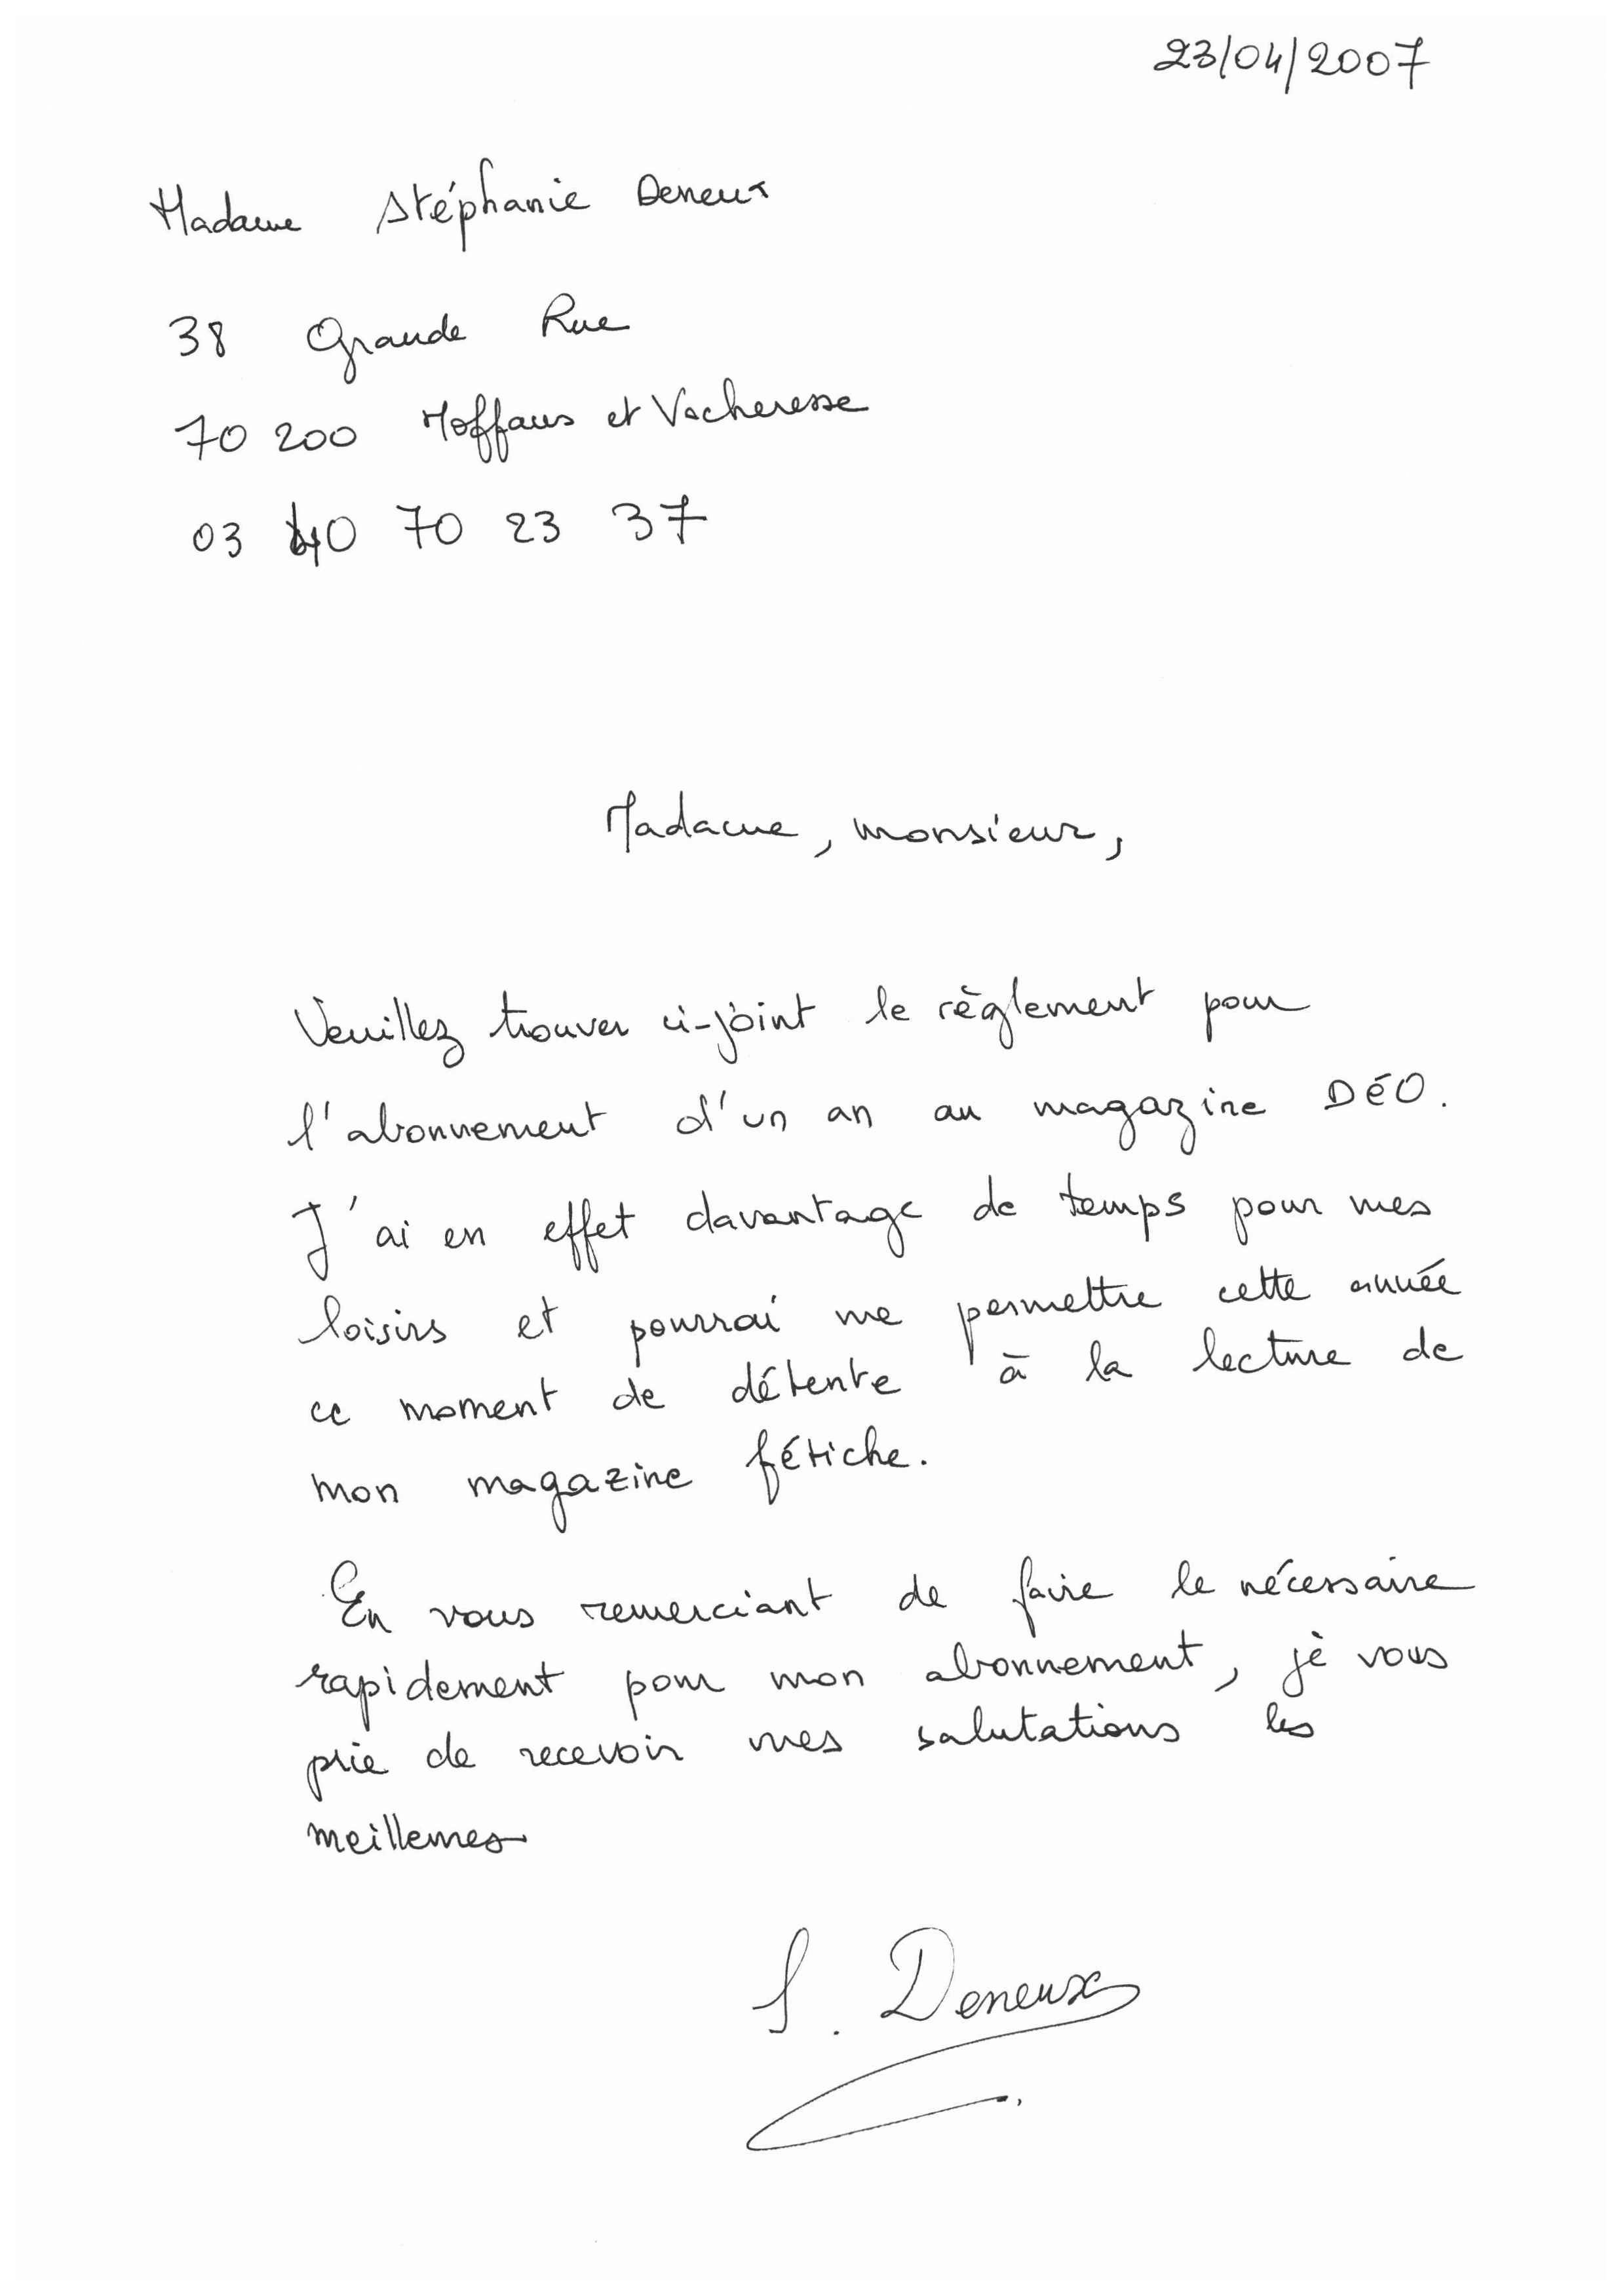 23/04/2007
Madame Stéphanie Deneux
38 Grande Rue
70 200 Moffans et Vacheresse
03 40 70 23 37
Madame, monsieur,
Veuillez trouver ci-joint le règlement pour
l'abonnement d'un an au magazine DÉO.
J'ai en effet davantage de temps pour mes
loisirs et pourrai me permettre cette année
ce moment de détente à la lecture de
mon magazine fétiche.
En vous remerciant de faire le nécessaire
rapidement pour mon abonnement, je vous
prie de recevoir mes salutations les
meilleures
S. Deneux